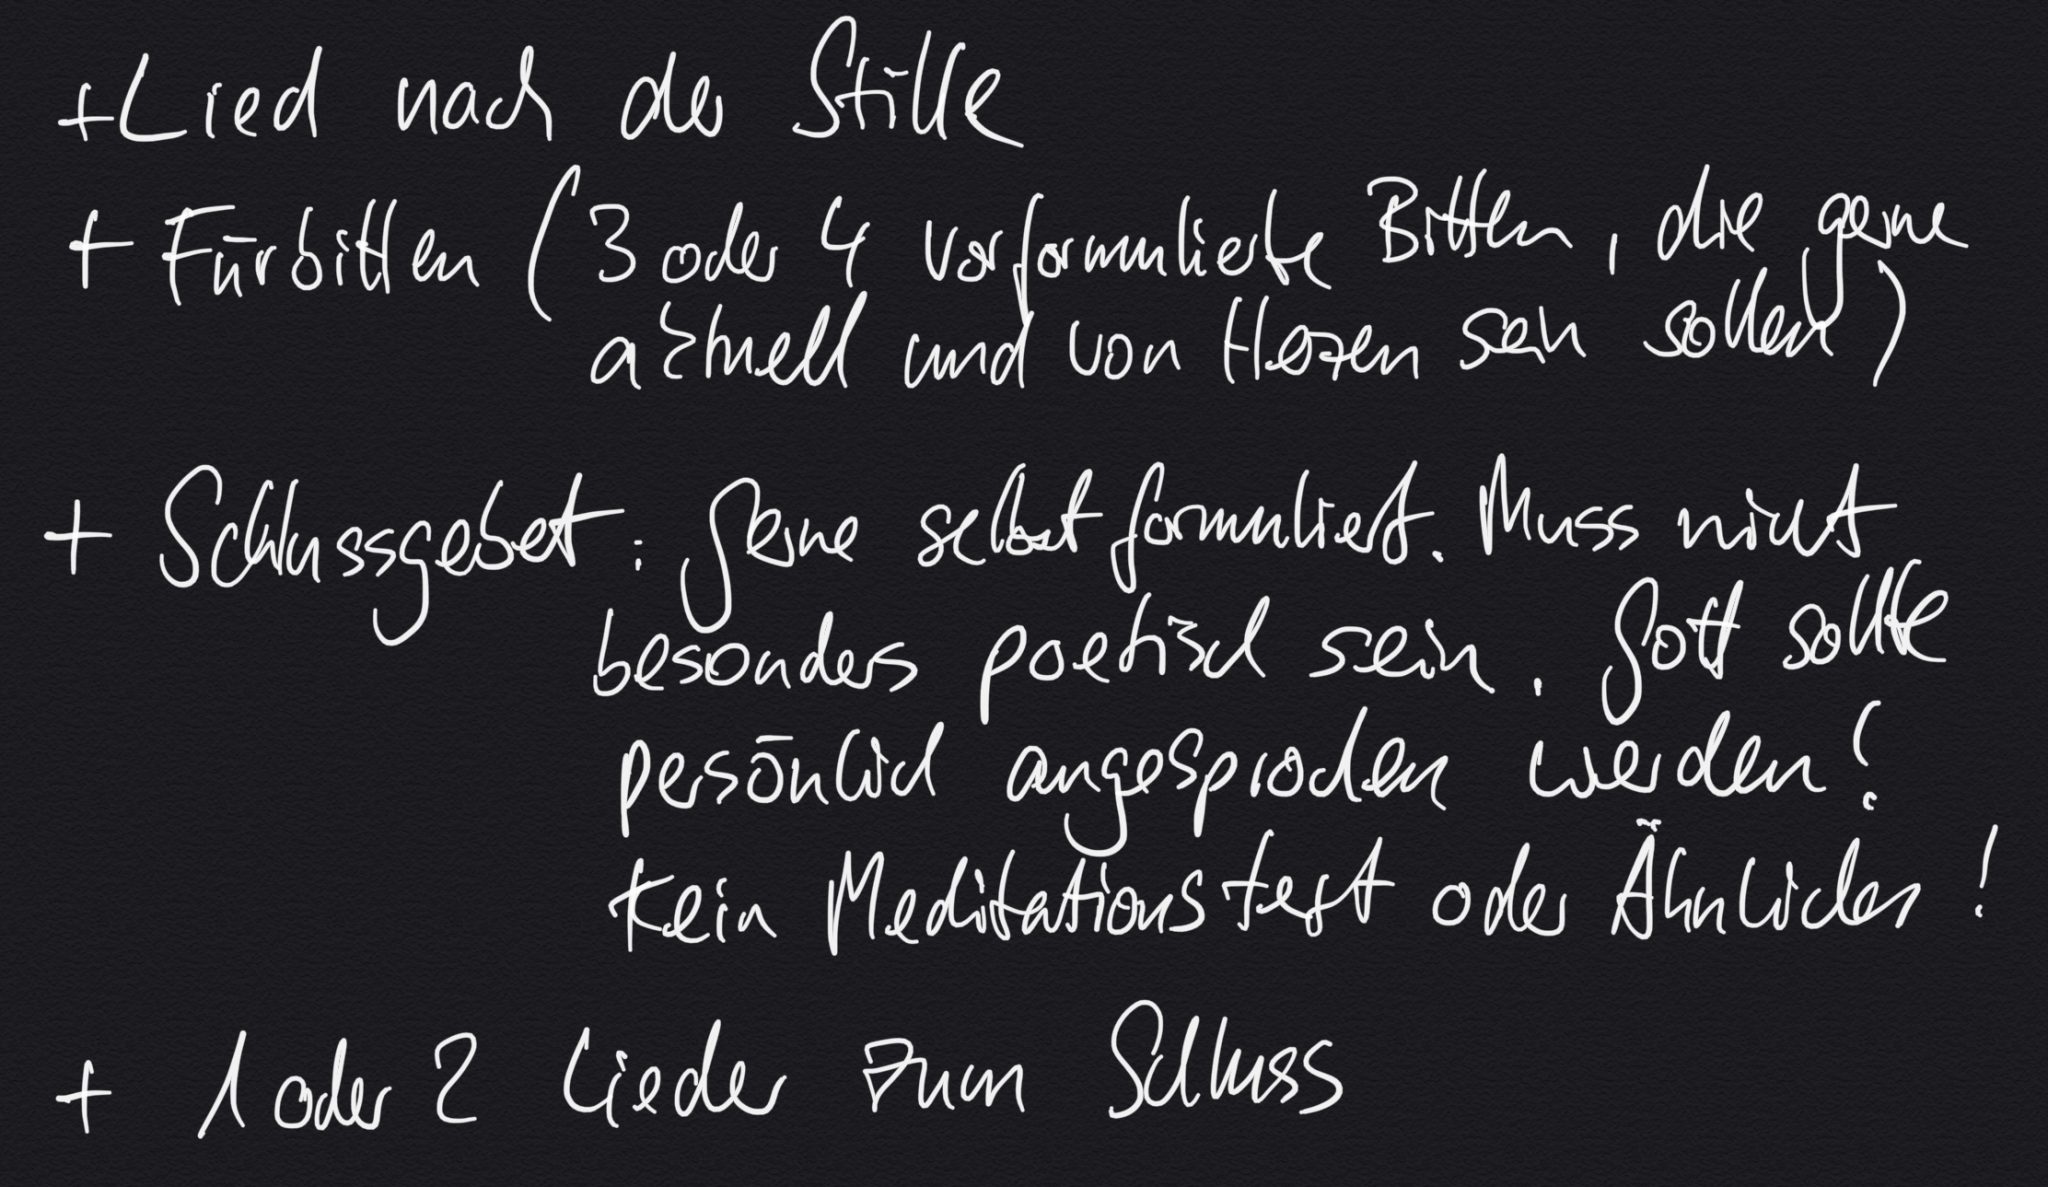 + Lied nach der Stille
+ Fürbitten (3 oder 4 vorformulierte Bitten, die gerne
aktuell und von Herzen sein sollen)
+ Schlussgebet: Gerne selbst formuliert. Muss nicht
besonders poetisch sein. Gott sollte
persönlich angesprochen werden!
Kein Meditationstext oder Ähnliches!
+ 1 oder 2 Lieder zum Schluss